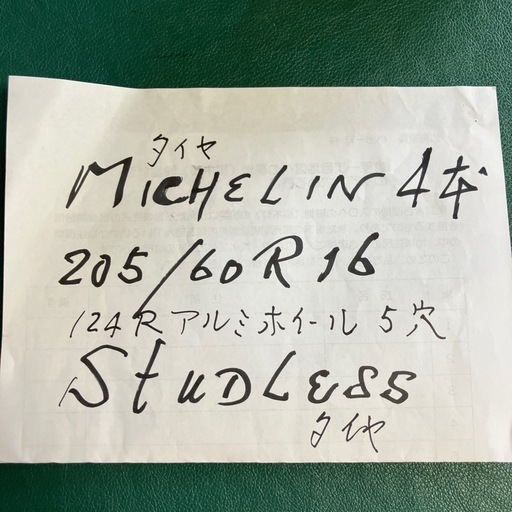 タイヤ
MICHELIN 4本
205/60R16
124R アルミホイール 5穴
STUDLESS
タイヤ